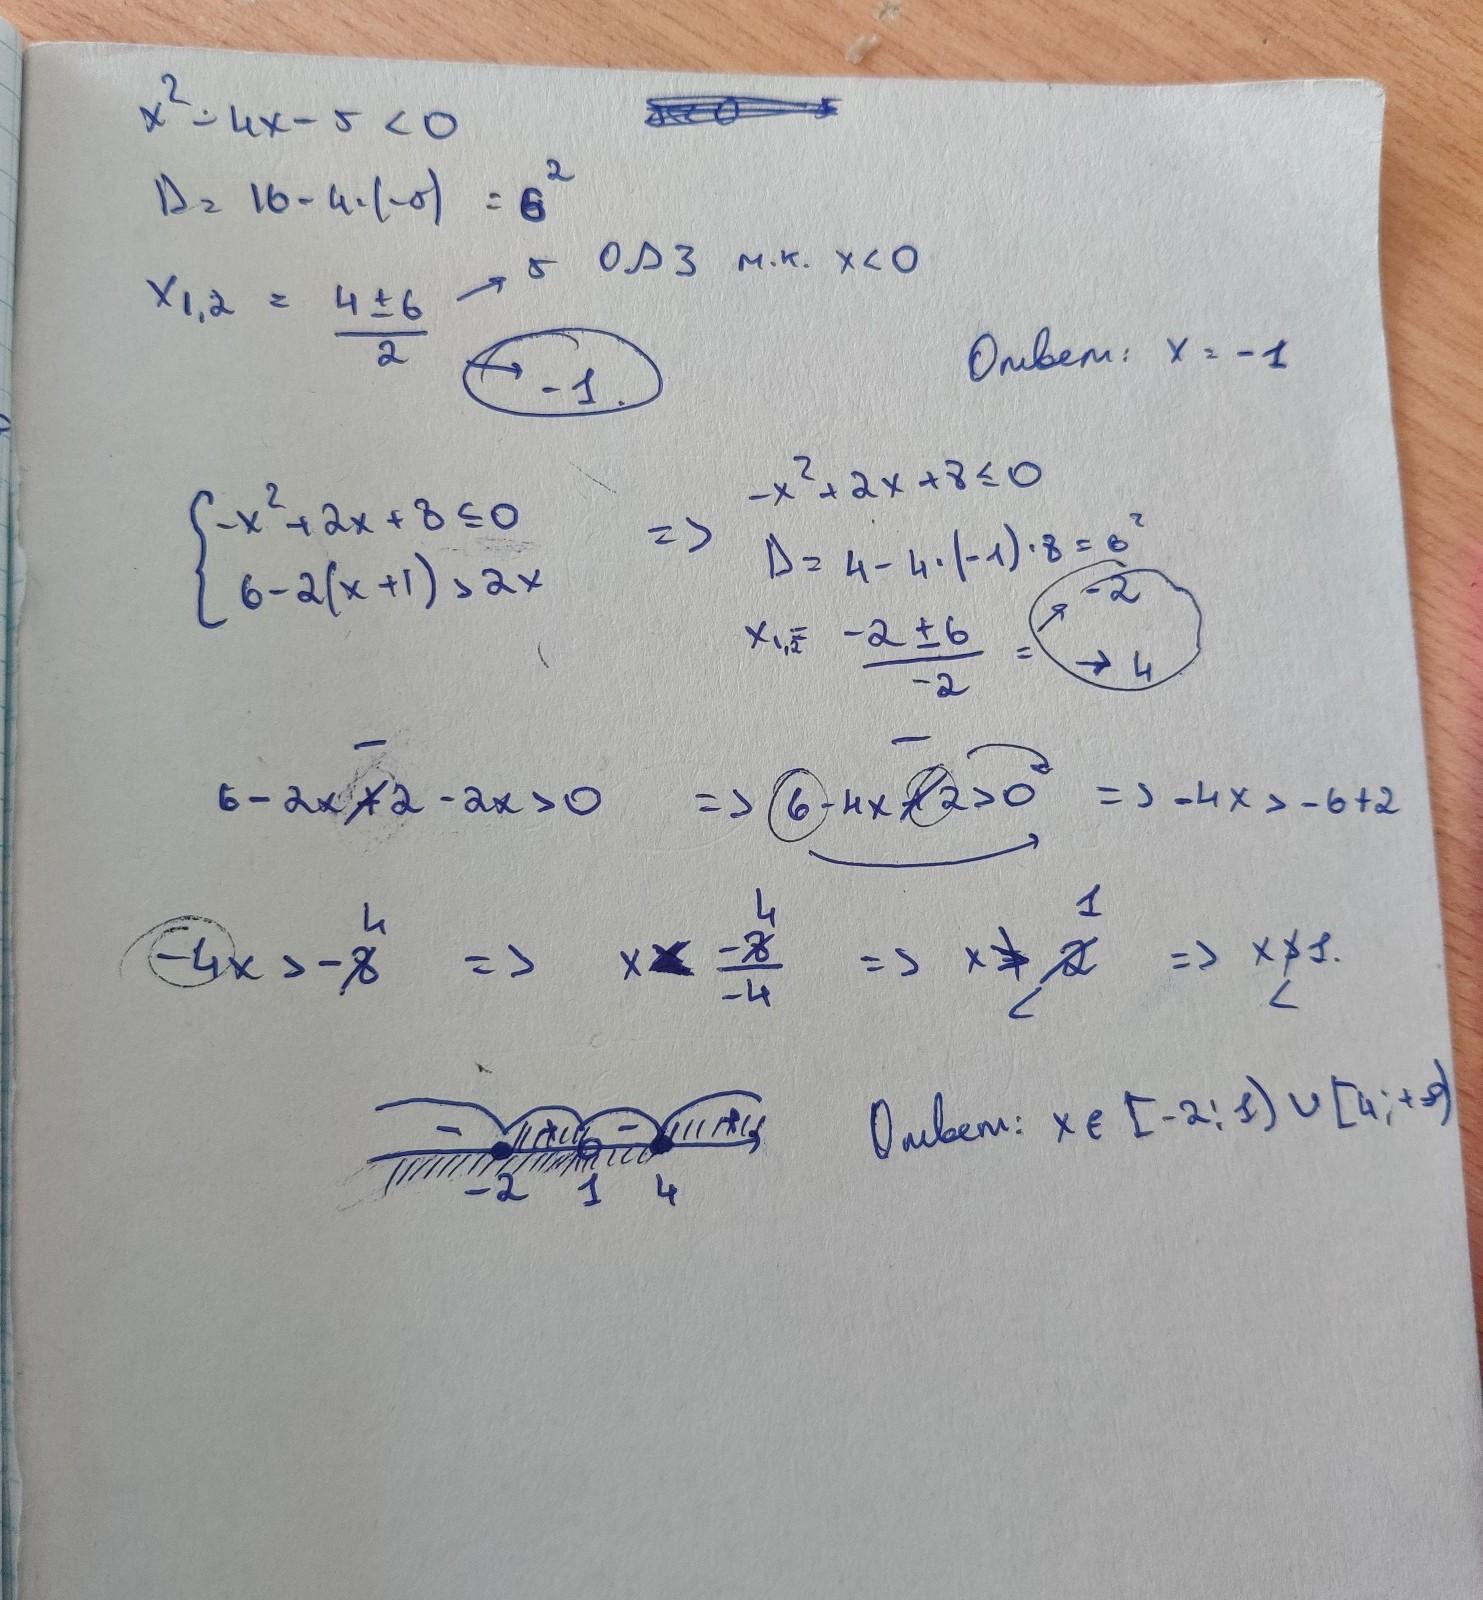 x² - 4x - 5 < 0
D = 16 - 4·(-5) = 6²
x1,2 = (4 ± 6)/2 → 5 ОДЗ т.к. x < 0
→ -1.
Ответ: x = -1
{ -x² + 2x + 8 ≤ 0 => -x² + 2x + 8 ≤ 0
6 - 2(x + 1) > 2x
D = 4 - 4·(-1)·8 = 6²
x1,2 = (-2 ± 6)/(-2) = → -2
→ 4
6 - 2x - 2 - 2x > 0 => 6 - 4x - 2 > 0 => -4x > -6 + 2
-4x > -4 => x < -4/-4 => x < 1 => x < 1.
- + - +
-2 1 4
Ответ: x ∈ [-2; 1) ∪ [4; +∞)